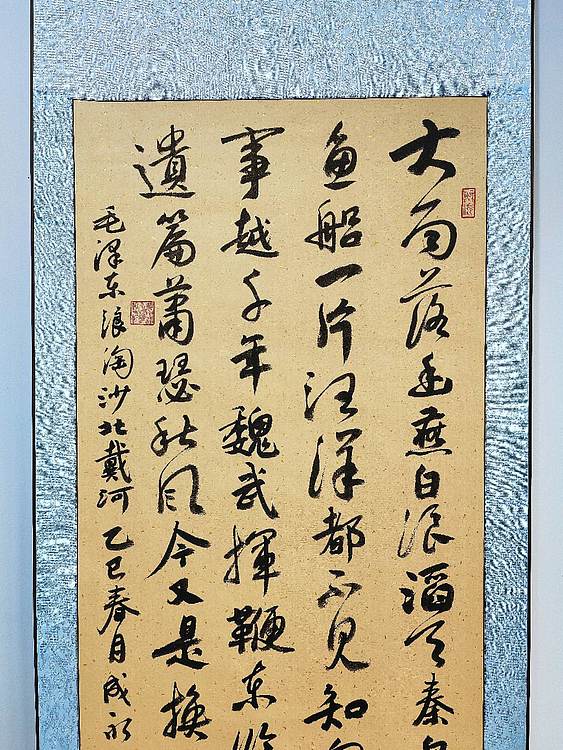 大雨落幽燕白浪滔天秦
鱼船一片汪洋都不见知
事越千年魏武揮鞭东
遺篇蕭瑟秋风今又是換
毛泽东浪淘沙北戴河乙巳春月成